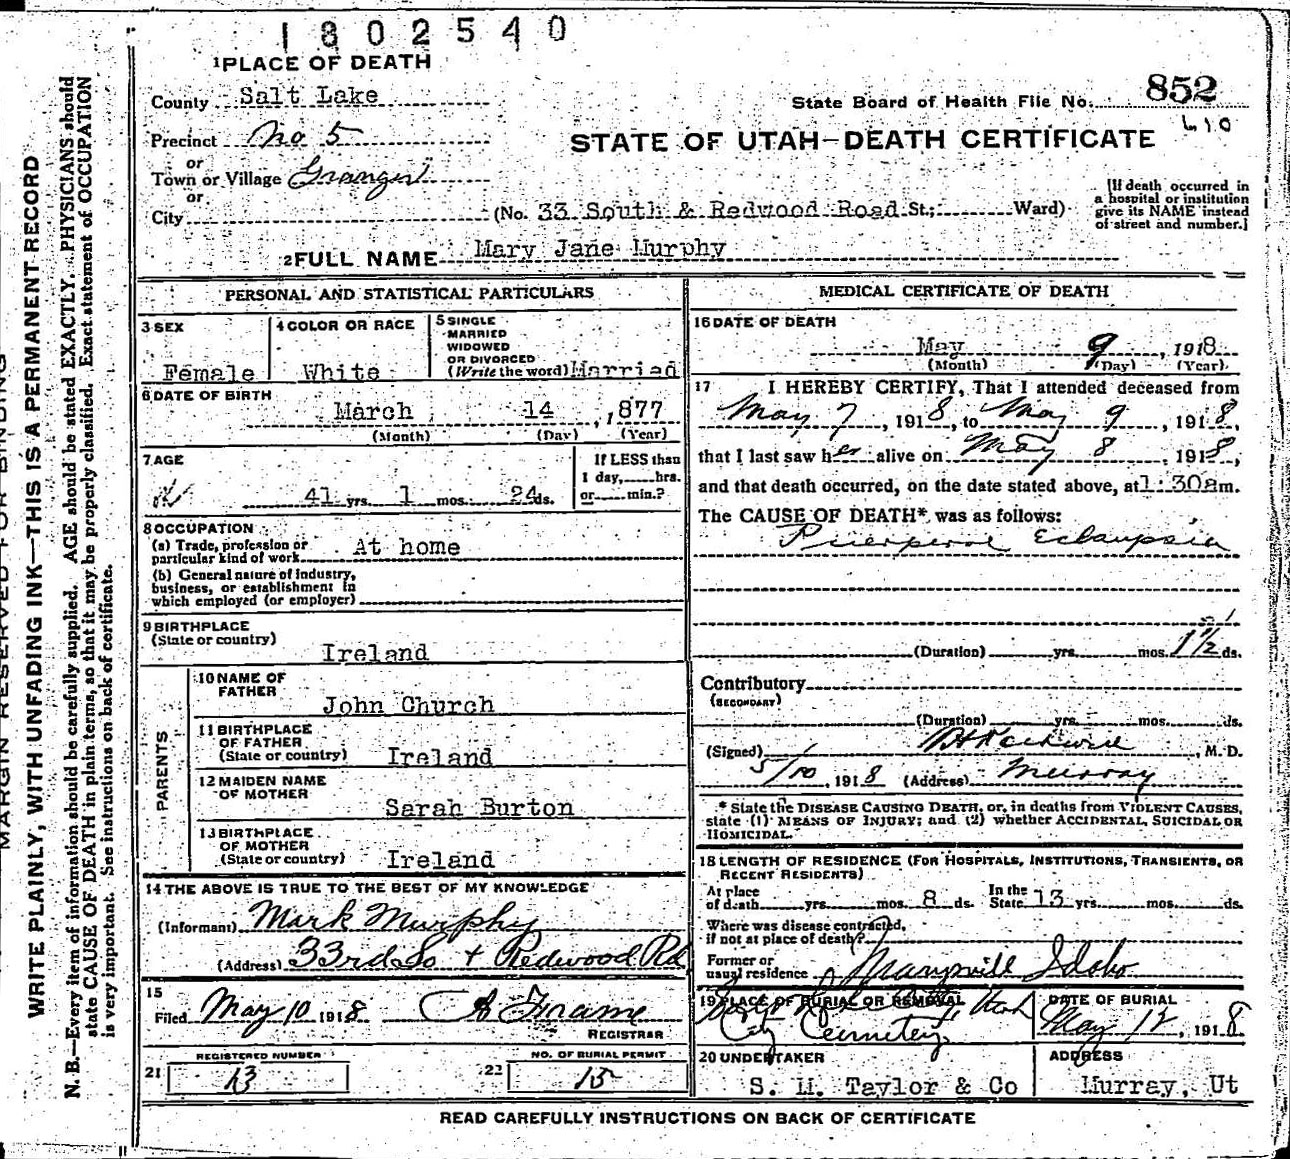 1802540
1 PLACE OF DEATH
County Salt Lake
State Board of Health File No. 852
610
Precinct No 5
STATE OF UTAH—DEATH CERTIFICATE
or
Town or Village Granger
or
City (No. 33 South & Redwood Road St.; Ward)
[If death occurred in
a hospital or institution
give its NAME instead
of street and number.]
2 FULL NAME Mary Jane Murphy
PERSONAL AND STATISTICAL PARTICULARS
3 SEX
Female
4 COLOR OR RACE
White
5 SINGLE
MARRIED
WIDOWED
OR DIVORCED
(Write the word) Married
6 DATE OF BIRTH
March 14, 1877
(Month) (Day) (Year)
7 AGE
41 yrs. 1 mos. 24 ds.
If LESS than
1 day, hrs.
or min.?
8 OCCUPATION
(a) Trade, profession or
particular kind of work At home
(b) General nature of industry,
business, or establishment in
which employed (or employer)
9 BIRTHPLACE
(State or country)
Ireland
PARENTS
10 NAME OF
FATHER
John Church
11 BIRTHPLACE
OF FATHER
(State or country) Ireland
12 MAIDEN NAME
OF MOTHER
Sarah Burton
13 BIRTHPLACE
OF MOTHER
(State or country) Ireland
14 THE ABOVE IS TRUE TO THE BEST OF MY KNOWLEDGE
(Informant) Mark Murphy
(Address) 33rd So + Redwood Rd
15
Filed May 10 1918
REGISTRAR
REGISTERED NUMBER
21 13
NO. OF BURIAL PERMIT
22 15
MEDICAL CERTIFICATE OF DEATH
16 DATE OF DEATH
May 9, 1918
(Month) (Day) (Year)
17 I HEREBY CERTIFY, That I attended deceased from
May 7, 1918, to May 9, 1918,
that I last saw her alive on May 8, 1918,
and that death occurred, on the date stated above, at 1:30am.
The CAUSE OF DEATH* was as follows:
Puerperal Eclampsia
(Duration) yrs. mos. 1 1/2 ds.
Contributory
(SECONDARY)
(Duration) yrs. mos. ds.
(Signed) , M. D.
5/10, 1918 (Address) Murray
* State the DISEASE CAUSING DEATH, or, in deaths from VIOLENT CAUSES,
state (1) MEANS OF INJURY; and (2) whether ACCIDENTAL, SUICIDAL OR
HOMICIDAL.
18 LENGTH OF RESIDENCE (FOR HOSPITALS, INSTITUTIONS, TRANSIENTS, OR
RECENT RESIDENTS)
At place
of death yrs. mos. 8 ds. In the
State 13 yrs. mos. ds.
Where was disease contracted,
if not at place of death?
Former or
usual residence Marysvill Idaho
19 PLACE OF BURIAL OR REMOVAL
Utah
City Cemetery
DATE OF BURIAL
May 12, 1918
20 UNDERTAKER
S. M. Taylor & Co
ADDRESS
Murray, Ut
READ CAREFULLY INSTRUCTIONS ON BACK OF CERTIFICATE
MARGIN RESERVED FOR BINDING
WRITE PLAINLY, WITH UNFADING INK—THIS IS A PERMANENT RECORD
N. B.—Every item of information should be carefully supplied. AGE should be stated EXACTLY. PHYSICIANS should
state CAUSE OF DEATH in plain terms, so that it may be properly classified. Exact statement of OCCUPATION
is very important. See instructions on back of certificate.